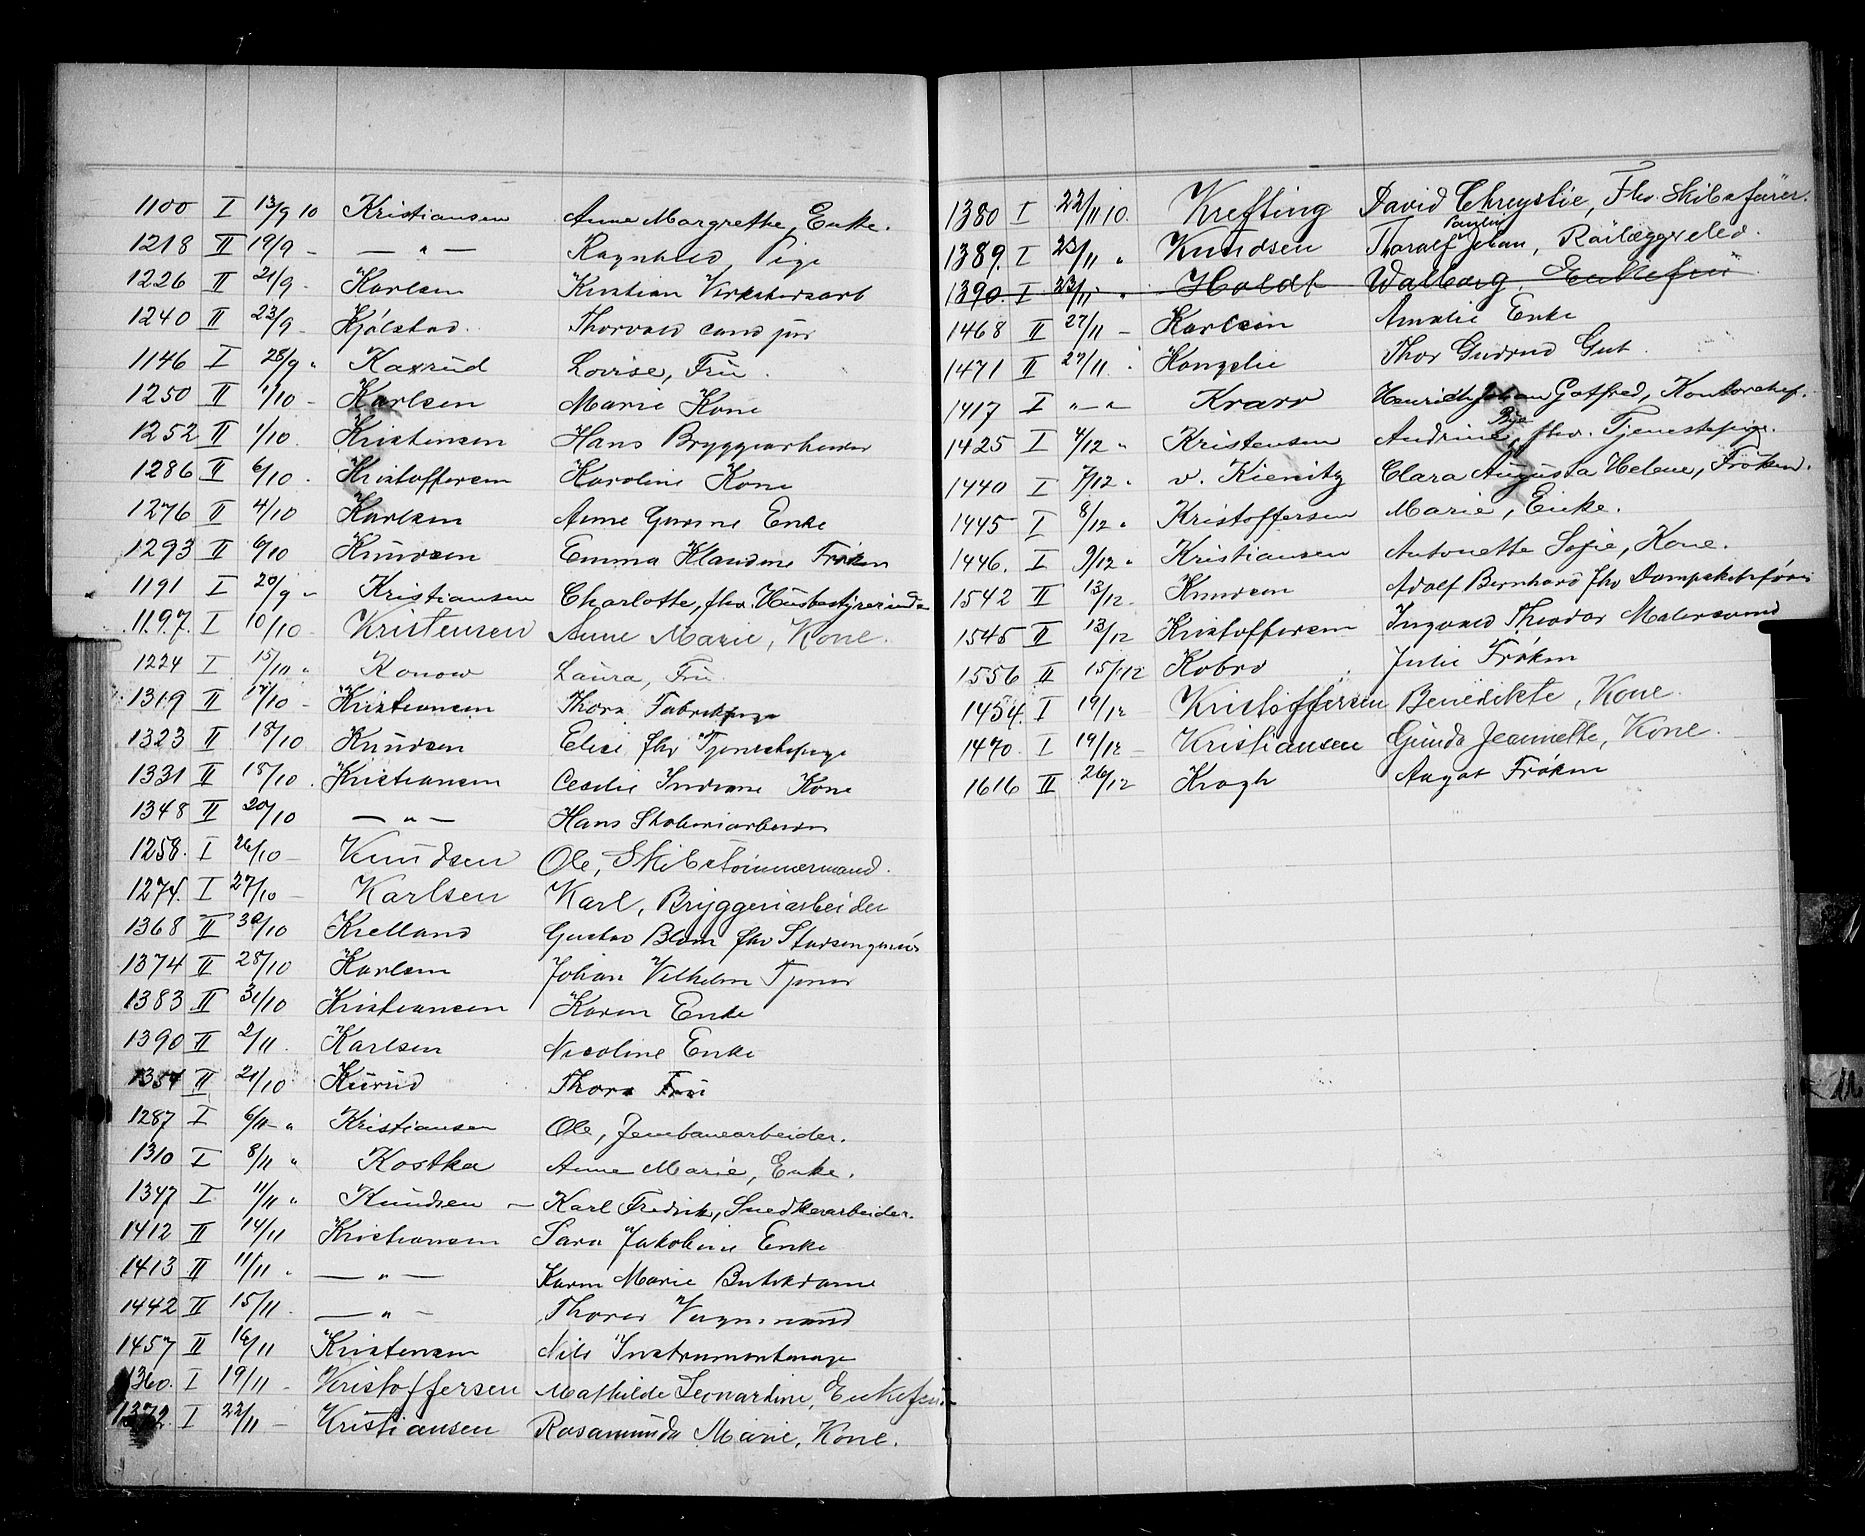 1100 I 13/9 10 Kristiansen Anne Margrethe, Enke.
1218 II 19/9 - — " — Ragnhild Pige
1226 II 21/9 - Karlsen Kristian Verkstedsarb
1240 II 23/9 - Kjølstad. Thorvald cand jur
1146 I 28/9 " Kaxrud Lovise, Fru.
1250 II 1/10 - Karlsen Marie Kone
1252 II 1/10. Kristensen Hans Bryggiarbeider
1286 II 6/10. Kristoffersen Karoline Kone
1276 II 4/10 Karlsen Anne Gurine Enke
1293 II 6/10 Knudsen Emma Klaudine Frøken
1191 I 20/9 " Kristiansen Charlotte, fhv. Husbestyrerinde
1197. I 10/10 - Kristensen Anne Marie, Kone.
1224 I 15/10 " Konow Laura, Fru.
1319 II 17/10 - Kristiansen Thora Fabrikpige
1323 II 18/10 Knudsen Elise fhv Tjenestepige
1331 II 18/10. Kristiansen Cecilie Indiane Kone
1348 II 20/10 — " — Hans Skoleriarbeider
1258. I 26/10 - Knudsen Ole, Skibstømmermand.
1274. I 27/10 - Karlsen Karl, Bryggeriarbeider
1368 II 30/10 Kielland Gustav Blom fhv Stadsingeniør
1374 II 28/10 Karlsen Johan Vilhelm Tjener
1383 II 31/10 Kristiansen Karen Enke
1390 II 2/11. Karlsen Nicoline Enke
1354 II 21/10 Kurud Thora Fru
1287 I 6/11 - " Kristiansen Ole, Jernbanearbeider.
1310 I 8/11 " Kostka Anne Marie, Enke.
1347 I 11/11 " Knudsen — Karl Fredrik, Snedkerarbeider.
1412 II 14/11 Kristiansen Sara Jakobine Enke
1413 II 11/11. — " — Karen Marie Butikdame
1442 II 15/11. — " — Thorer Vognmand
1457 II 16/11 Kristensen Nils Instrumentmager
1360. I 19/11 - Kristoffersen Mathilde Leonardine, Enkefru.
1372. I 22/11 - Kristiansen Rosamunda Marie, Kone.
1380 I 22/11 10. Krefting David Chrystie, Fhv. Skibsfører.
1389. I 23/11 " Knudsen Tharalf Paulin Johan, Rørlæggerelev.
1390. I 23/11 " Holdt Walborg, Enkefru
1468 II 27/11 - Karlsen Amalie Enke
1471 II 27/11. Kongslie Thor Gudrud Gut
1417 I " - " Krarv Henrich Johan Gotfred, Kontorchef.
1425 I 4/12 " Kristensen Andrine Bye, fhv. Tjenestepige.
1440 I 7/12 " v. Kienitz Clara Augusta Helene, Frøken.
1445 I 8/12 " Kristoffersen Marie, Enke.
1446. I 9/12 " Kristiansen Antonette Sofie, Kone.
1542 II 13/12 - Knudsen Adolf Bernhard fhv Dampskibsfører
1545 II 13/12 Kristoffersen Ingvald Theodor Malersvend
1556 II 15/12 Kobro Julie Frøken
1454. I 19/12 Kristoffersen Benedikte, Kone.
1470. I 19/12 - Kristiansen Gunda Jeannette, Kone.
1616 II 26/12 Krogh Aagot Frøken